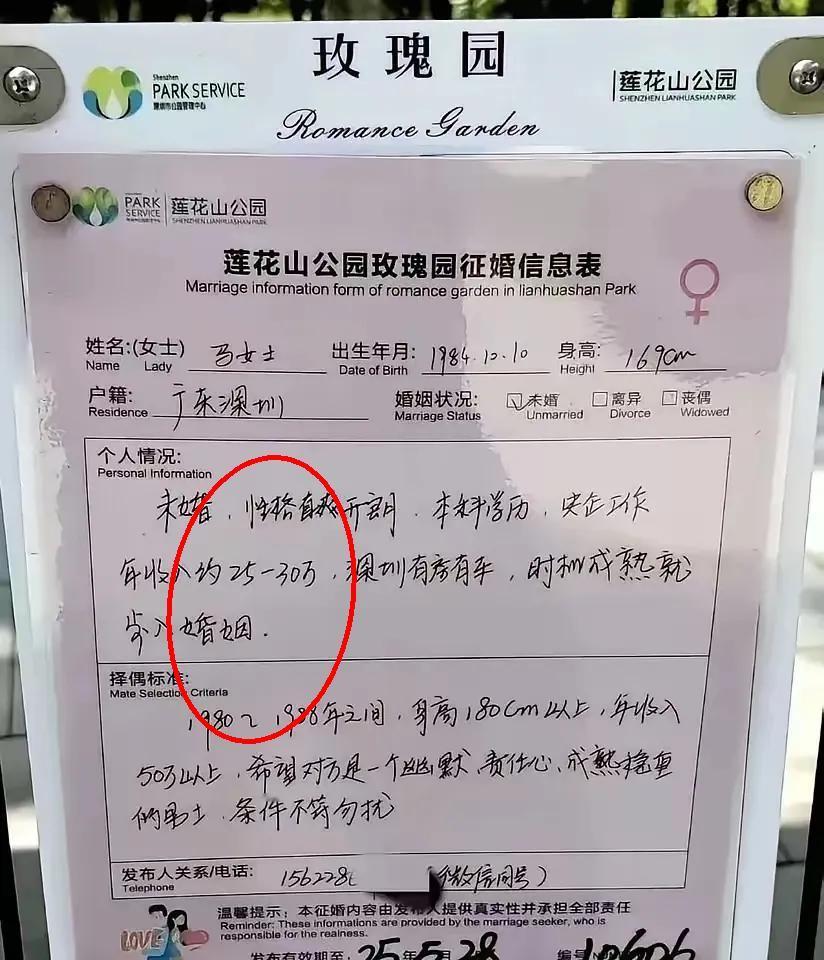 玫瑰园
Shenzhen
PARK SERVICE
深圳市公园管理中心
莲花山公园
SHENZHEN LIANHUASHAN PARK
Romance Garden
PARK SERVICE
莲花山公园
SHENZHEN LIANHUASHAN PARK
莲花山公园玫瑰园征婚信息表
Marriage information form of romance garden in lianhuashan Park
姓名:(女士) 马女士 出生年月: 1984.12.10 身高: 169cm
Name Lady Date of Birth Height
户籍: 广东深圳 婚姻状况: ☑未婚 □离异 □丧偶
Residence Marriage Status Unmarried Divorce Widowed
个人情况:
Personal Information
未婚，性格直爽开朗，本科学历，央企工作
年收入约25-30万，深圳有房有车，时机成熟就
步入婚姻.
择偶标准:
Mate Selection Criteria
1980~1988年之间，身高180cm以上，年收入
50万以上，希望对方是一个幽默、责任心、成熟稳重
的男士，条件不符勿扰
发布人关系/电话: 156228 (微信同号)
Telephone
LOVE
温馨提示：本征婚内容由发布人提供真实性并承担全部责任
Reminder: These informations are provided by the marriage seeker, who is
responsible for the realness.
发布有效期至: 25年5月28 编号 10606